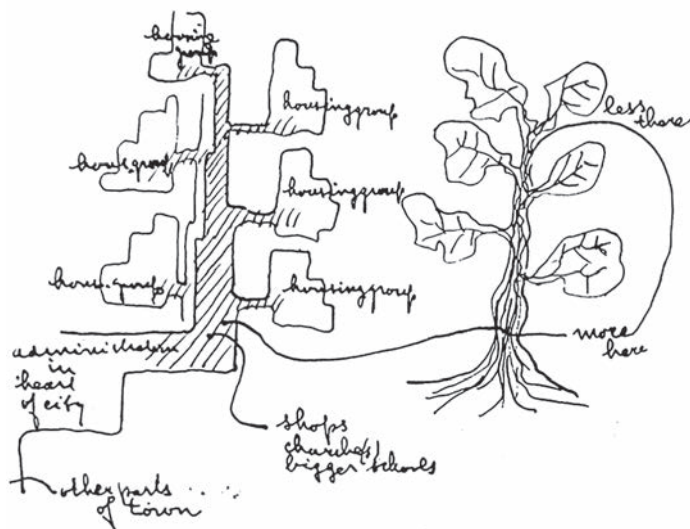 housing
group
housinggroup
less
there
housgroup
housinggroup
hous.group
housinggroup
more
here
administration
in
heart
of city
shops
church(es)
bigger schools
other parts
of town